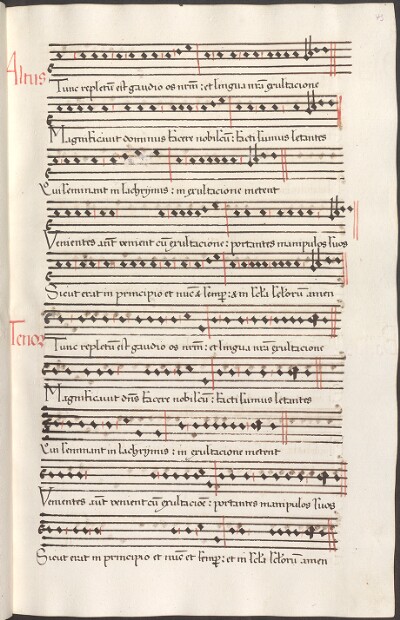 Altus
Tunc repletū est gaudio os nrm̄ : et lingua nrā exultacione
Magnificavit dominus facere nobiscū : facti sumus letantes
Qui seminant in lachrymis : in exultacione metent
Venientes aūt venient cū exultacione : portantes manipulos suos
Sicut erat in principio et nūc & semp : & in secla seclorum amen
Tenor
Tunc repletū est gaudio os nrm̄ : et lingua nrā exultacione
Magnificavit dn̄s facere nobiscū : facti sumus letantes
Qui seminant in lachrymis : in exultacione metent
Venientes aūt venient cū exultacioē : portantes manipulos suos
Sicut erat in principio et nūc et semp : et in secla seclorum amen